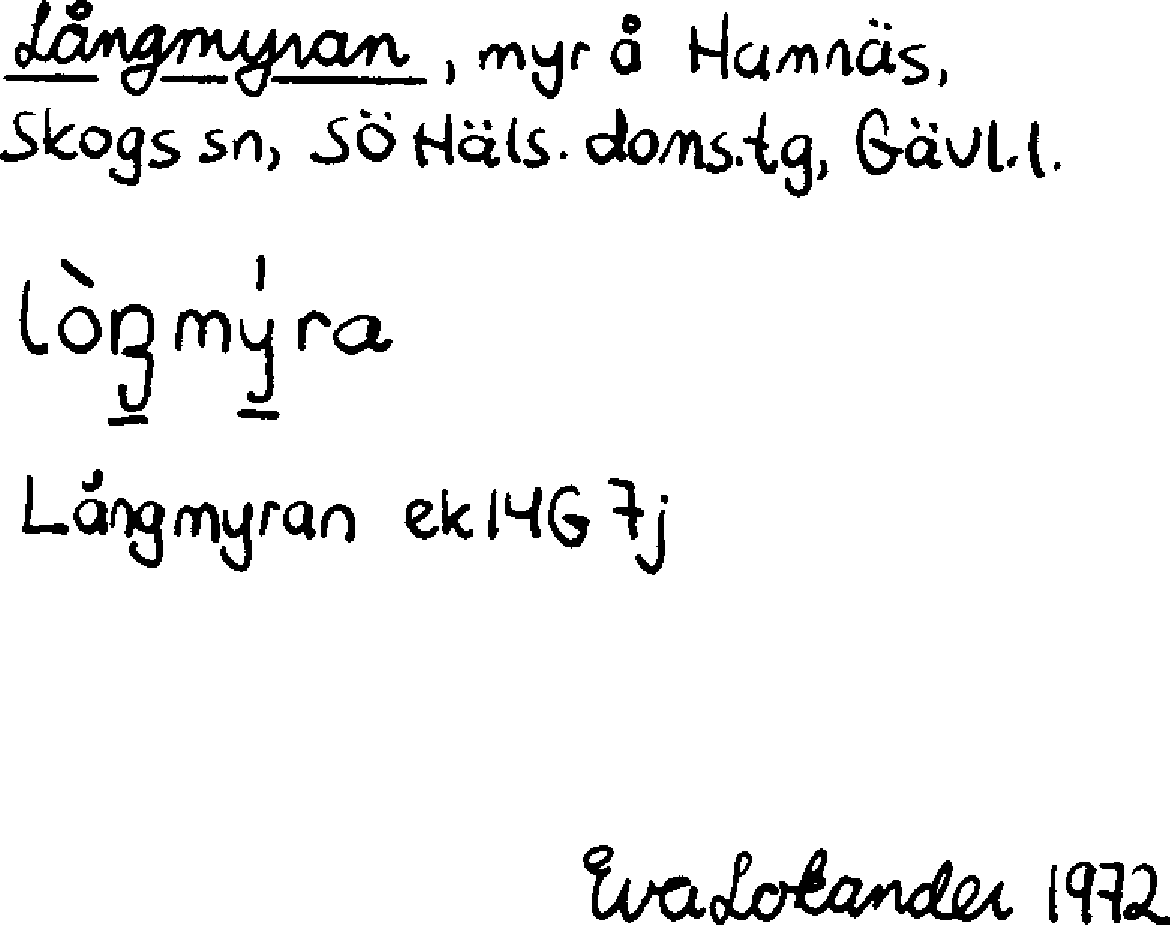 Långmyran, myr å Hamnäs,
Skogs sn, SöHäls. doms.tg, Gävl.l.
lòŋmýra
Långmyran ek 14G 7j
Eva Lokander 1972